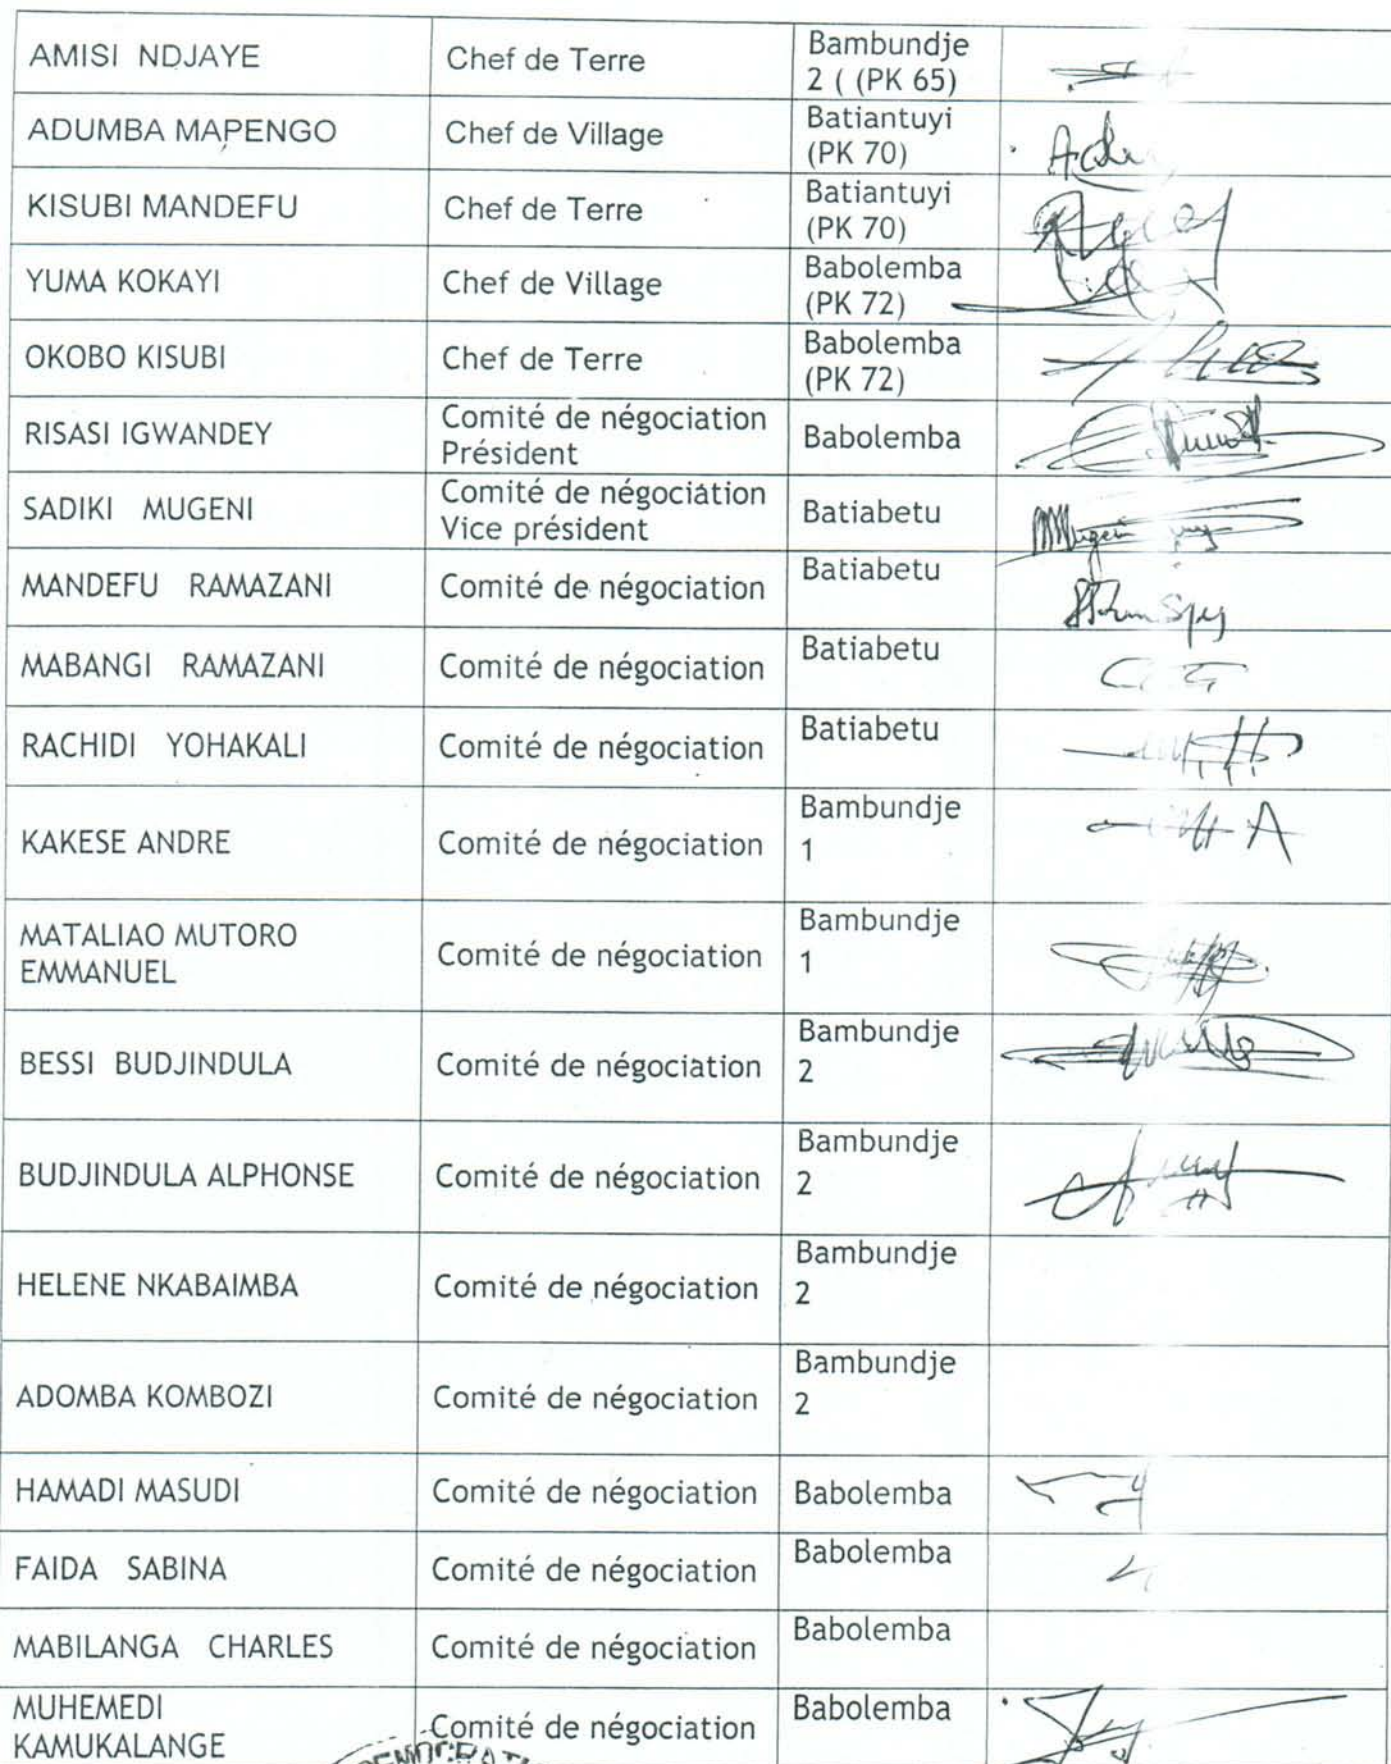 AMISI NDJAYE
Chef de Terre
Bambundje
2 ( (PK 65)
ADUMBA MAPENGO
Chef de Village
Batiantuyi
(PK 70)
KISUBI MANDEFU
Chef de Terre
Batiantuyi
(PK 70)
YUMA KOKAYI
Chef de Village
Babolemba
(PK 72)
OKOBO KISUBI
Chef de Terre
Babolemba
(PK 72)
RISASI IGWANDEY
Comité de négociation
Président
Babolemba
SADIKI MUGENI
Comité de négociation
Vice président
Batiabetu
MANDEFU RAMAZANI
Comité de négociation
Batiabetu
MABANGI RAMAZANI
Comité de négociation
Batiabetu
RACHIDI YOHAKALI
Comité de négociation
Batiabetu
KAKESE ANDRE
Comité de négociation
Bambundje
1
MATALIAO MUTORO
EMMANUEL
Comité de négociation
Bambundje
1
BESSI BUDJINDULA
Comité de négociation
Bambundje
2
BUDJINDULA ALPHONSE
Comité de négociation
Bambundje
2
HELENE NKABAIMBA
Comité de négociation
Bambundje
2
ADOMBA KOMBOZI
Comité de négociation
Bambundje
2
HAMADI MASUDI
Comité de négociation
Babolemba
FAIDA SABINA
Comité de négociation
Babolemba
MABILANGA CHARLES
Comité de négociation
Babolemba
MUHEMEDI
KAMUKALANGE
Comité de négociation
Babolemba